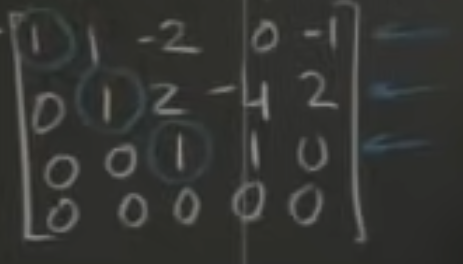 1 1 -2 0 -1
0 1 2 -4 2
0 0 1 1 0
0 0 0 0 0